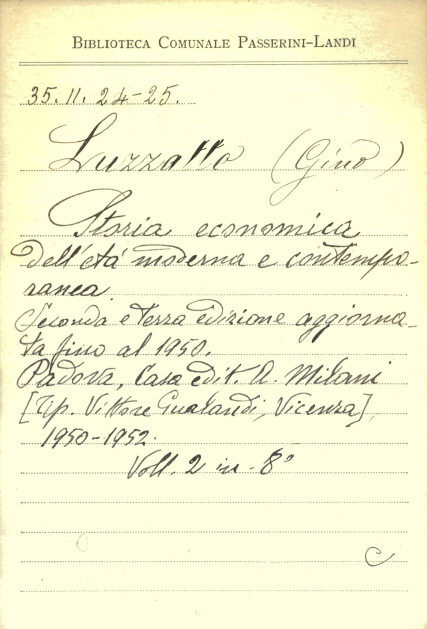 BIBLIOTECA COMUNALE PASSERINI-LANDI
35. 11. 24-25.
Luzzatto (Gino)
Storia economica
dell'etá moderna e contempo-
ranea.
Seconda e terza edizione aggiorna-
ta fino al 1950.
Padova, Casa edit. A. Milani
[Tip. Vittore Gualandi, Vicenza],
1950-1952.
Voll. 2 in-8°
C